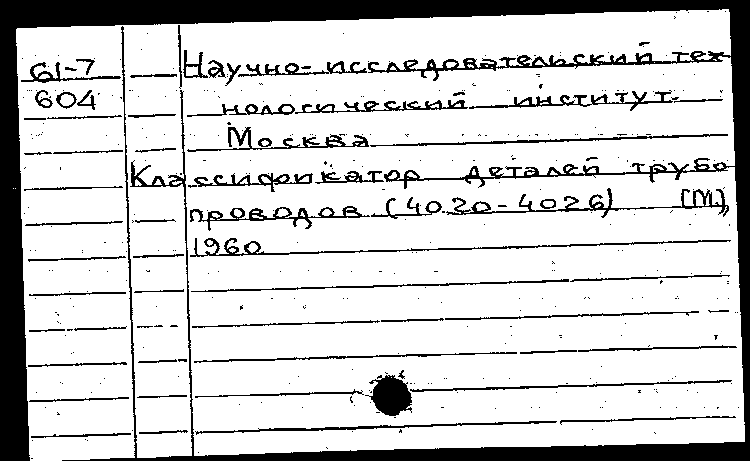 61-7 Научно-исследовательский тех-
604 нологический институт.
Москва
Классификатор деталей трубо
проводов (4020-4026) [М.],
1960